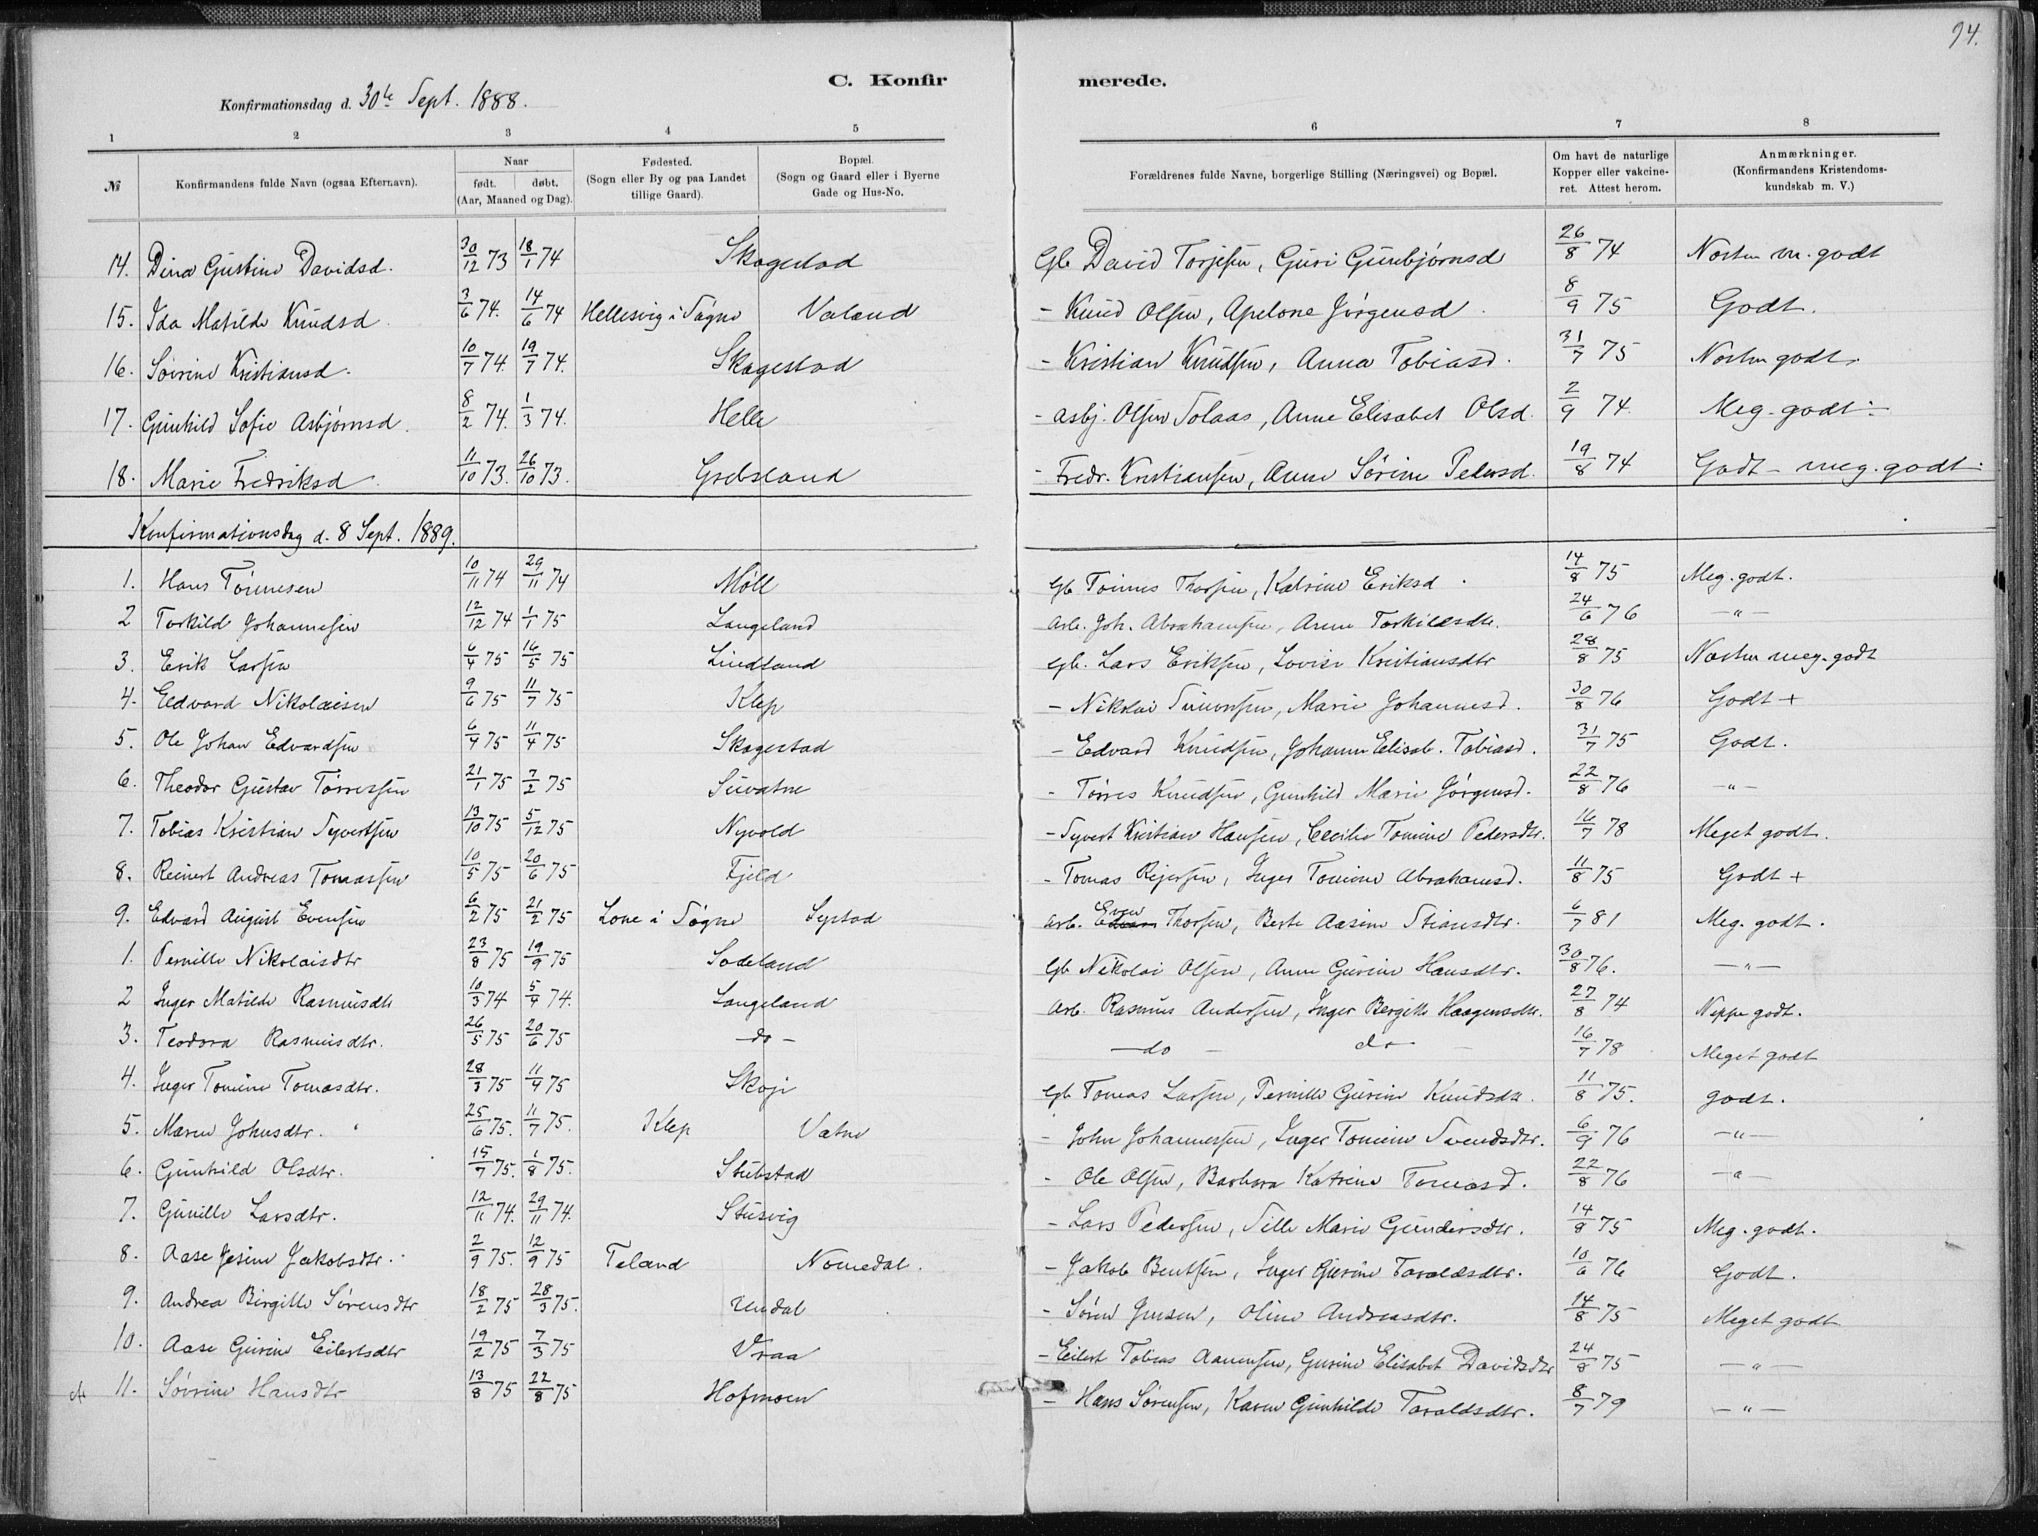 94.
C. Konfirmerede.
Konfirmationsdag d. 30te Sept. 1888.
1 2 3 4 5 6 7 8
№ Konfirmandens fulde Navn (ogsaa Efternavn). Naar født. døbt. (Aar, Maaned og Dag). Fødested. (Sogn eller By og paa Landet tillige Gaard). Bopæl. (Sogn og Gaard eller i Byerne Gade og Hus-No. Forældrenes fulde Navne, borgerlige Stilling (Næringsvei) og Bopæl. Om havt de naturlige Kopper eller vakcineret. Attest herom. Anmærkninger. (Konfirmandens Kristendomskundskab m. V.)
14. Dina Gustine Davidsd. 30/12 73 18/1 74 Skogestad Gb David Torjesen, Guri Gunbjørnsd 26/8 74 Næsten m. godt
15. Ida Matilde Knudsd. 3/6 74. 14/6 74 Hellesvig i Søgne Valand - Knud Olsen, Apelone Jørgensd. 8/9 75 Godt.
16. Sørine Kristiansd. 10/7 74. 19/7 74. Skogestad - Kristian Knudsen, Anna Tobiasd. 31/7 75 Næsten godt.
17. Gunhild Sofie Asbjørnsd. 8/2 74. 1/3 74. Helle - Asbj. Olsen Solaas, Anne Elisabet Olsd. 2/9 74. Meg. godt ÷
18. Marie Fredriksd. 11/10 73. 26/10 73. Grebsland - Fredr. Kristiansen, Anne Sørine Pedersd. 19/8 74 Godt - meg. godt.
Konfirmationsdag d. 8 Sept. 1889.
1. Hans Tønnesen 10/11 74 29/11 74 Møll Gb Tønnes Thorsen, Katrine Eriksd. 14/8 75 Meg. godt.
2 Torkild Johannesen 12/12 74 1/1 75 Langeland Arb. Joh. Abrahamsen, Anne Torkildsdtr. 24/6 76 -"-
3. Erik Larsen 6/4 75 16/5 75 Lindland Gb. Lars Eriksen, Lovise Kristiansdtr 28/8 75 Næsten meg. godt
4. Edvard Nikolaisen 9/6 75 11/7 75 Klep - Nikolai Simonsen, Marie Johannesd. 30/8 76 Godt +
5. Ole Johan Edvardsen 6/4 75 11/4 75 Skogestad - Edvard Knudsen, Johanne Elisab. Tobiasd. 31/7 75 Godt.
6. Theodor Gustav Tørresen 21/1 75 7/2 75 - Tørres Knudsen, Gunhild Marie Jørgensd. 22/8 76 -"-
7. Tobias Kristian Syvertsen 13/10 75 5/12 75 Nyvold - Syvert Kristian Hansen, Cecilie Tomine Pedersdtr. 16/7 78 Meget godt.
8. Reinert Andreas Tomassen 10/5 75 20/6 75 Fjeld - Tomas Rejersen, Inger Tomine Abrahamsd. 11/8 75 Godt +
9. Edvard August Evensen 6/2 75 21/2 75 Lone i Søgne Systad Arb. Even Thorsen, Berte Aasine Stiansdtr. 6/7 81 Meg. godt.
1. Pernille Nikolaisdtr 23/8 75 19/9 75 Sodeland Gb Nikolai Olsen, Anne Gurine Hansdtr. 30/8 76. -"-
2 Inger Matilde Rasmusdtr 10/3 74 5/4 74. Langeland Arb. Rasmus Andersen, Inger Bergitte Haagensdtr. 27/8 74 Neppe godt.
3. Teodora Rasmusdtr. 26/5 75 20/6 75 -do- -do- do- 16/7 78 Meget godt
4. Inger Tomine Tomasdtr. 28/3 75 11/4 75 Skoje Gb Tomas Larsen, Pernille Gurine Knudsdtr. 11/8 75. godt.
5. Maren Johnsdtr. 25/6 75. 11/7 75. Klep Vatne - John Johannessen, Inger Tomine Svendsdtr. 6/9 76 -"-
6. Gunhild Olsdtr. 15/7 75. 1/8 75. Stubstad - Ole Olsen, Barbara Katrine Tomasd. 22/8 76 -"-
7. Gunille Larsdtr. 12/11 74. 29/11 74. Stusvig - Lars Pedersen, Sille Marie Gundersdtr. 14/8 75 Meg. godt.
8. Aase Jesine Jakobsdtr. 2/9 75. 12/9 75 Teland Nomedal. - Jakob Bentsen, Inger Gurine Taraldsdtr. 10/6 76 Godt.
9. Andrea Birgitte Sørensdtr 18/2 75 28/3 75. Undal - Søren Jensen, Oline Andreasdtr. 14/8 75 Meget godt
10. Aase Gurine Eilertsdtr 19/2 75 7/3 75 Vraa - Eilert Tobias Aanensen, Gurine Elisabet Davidsdtr 24/8 75 -"-
11. Sørine Hansdtr 13/8 75 22/8 75 Hofmoen - Hans Sørensen, Karen Gunhilde Taraldsdtr. 8/7 79 -"-